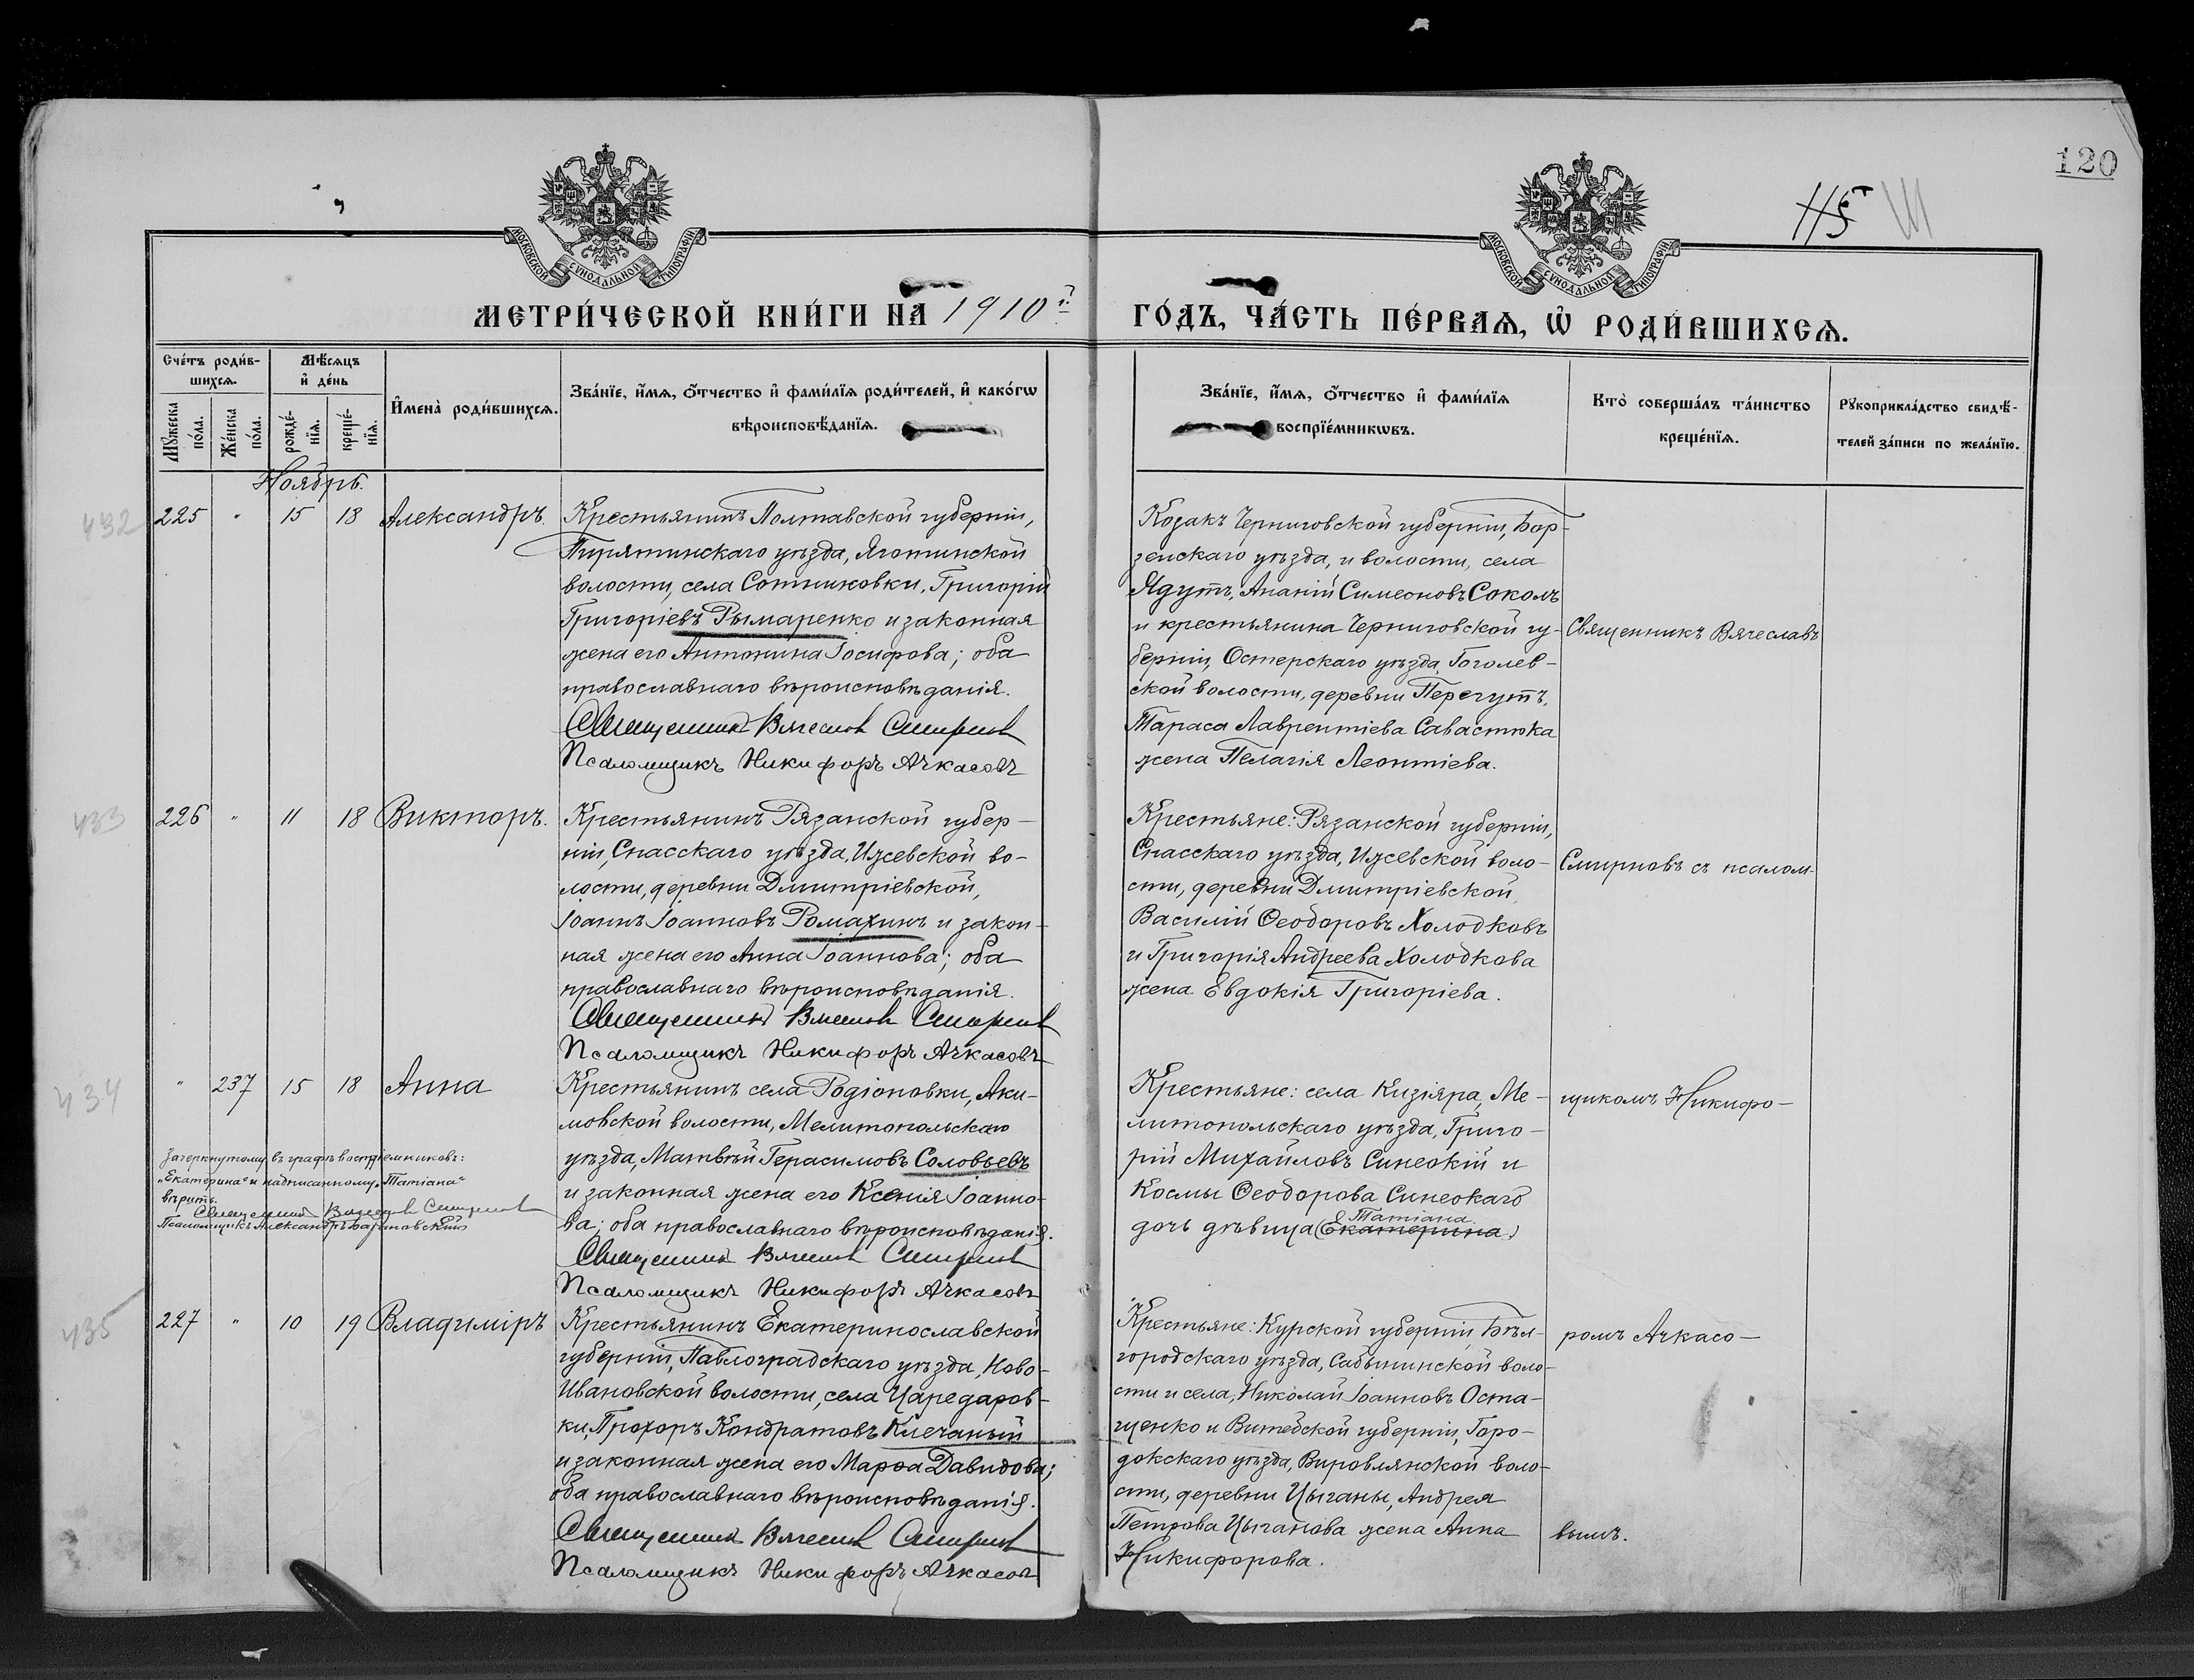 120
115
МОСКОВСКОЙ СѴНОДАЛЬНОЙ ТИПОГРАФІИ
МОСКОВСКОЙ СѴНОДАЛЬНОЙ ТИПОГРАФІИ
МЕТРИ́ЧЕСКОЙ КНИ́ГИ НА 1910й ГО́ДЪ, ЧА́СТЬ ПЕ́РВАѦ, Ѡ҆ РОДИ́ВШИХСѦ.
Сче́тъ роди́в-
шихсѧ.
Мꙋ́жеска по́ла.
Же́нска по́ла.
Мѣ́сѧцъ
и҆ де́нь
рожде́-
нїѧ.
креще́-
нїѧ.
И҆мена̀ роди́вшихсѧ.
Зва́нїе, и҆́мѧ, о҆́тчество и҆ фами́лїѧ роди́телей, и҆ како́гѡ
вѣроисповѣ́данїѧ.
Зва́нїе, и҆́мѧ, о҆́тчество и҆ фами́лїѧ
воспрїе́мникѡвъ.
Кто̀ соверша́лъ та́инство
креще́нїѧ.
Рꙋкоприкла́дство свидѣ́-
телей за́писи по жела́нїю.
Ноябрь.
432
225 " 15 18 Александръ.
Крестьянинъ Полтавской губерніи,
Пирятинскаго уѣзда, Яготинской
волости, села Сотниковки, Григорій
Григоріевъ Рымаренко и законная
жена его Антонина Іосифова; оба
православнаго вѣроисповѣданія.
Священникъ Вячеславъ Смирновъ
Псаломщикъ Никифоръ Ачкасовъ
Козакъ Черниговской губерніи, Бор-
зенскаго уѣзда, и волости, села
Ядутъ, Ананій Симеоновъ Соколъ
и крестьянина Черниговской гу-
берніи, Остерскаго уѣзда, Гоголев-
ской волости, деревни Перегутъ,
Тараса Лаврентіева Савастюка
жена Пелагія Леонтіева.
Священникъ Вячеславъ
433
226 " 11 18 Викторъ.
Крестьянинъ Рязанской губер-
ніи, Спасскаго уѣзда, Ижевской во-
лости, деревни Дмитріевской,
Іоаннъ Іоанновъ Ромахинъ и закон-
ная жена его Анна Іоаннова; оба
православнаго вѣроисповѣданія.
Священникъ Вячеславъ Смирновъ
Псаломщикъ Никифоръ Ачкасовъ
Крестьяне: Рязанской губерніи,
Спасскаго уѣзда, Ижевской воло-
сти, деревни Дмитріевской,
Василій Ѳеодоровъ Холодковъ
и Григорія Андреева Холодкова
жена Евдокія Григоріева.
Смирновъ съ псалом-
434
" 237 15 18 Анна
Крестьянинъ села Родіоновки, Аки-
мовской волости, Мелитопольскаго
уѣзда, Матвѣй Герасимовъ Соловьевъ
и законная жена его Ксенія Іоанно-
ва; оба православнаго вѣроисповѣданія.
Священникъ Вячеславъ Смирновъ
Псаломщикъ Никифоръ Ачкасовъ
Зачеркнутому въ графѣ воспріемниковъ:
"Екатерина" и надписанному "Татіана"
вѣрить.
Священникъ Вячеславъ Смирновъ
Псаломщикъ Александръ Барановскій
Крестьяне: села Кизіяра, Ме-
литопольскаго уѣзда, Григо-
рій Михайловъ Синеокій и
Космы Ѳеодорова Синеокаго
дочь дѣвица (Екатерина) Татіана
щикомъ Никифо-
435
227 " 10 19 Владиміръ
Крестьянинъ Екатеринославской
губерніи, Павлоградскаго уѣзда, Ново-
Ивановской волости, села Царедаров-
ки, Прохоръ Кондратовъ Клечаный
и законная жена его Марѳа Давидова;
оба православнаго вѣроисповѣданія.
Священникъ Вячеславъ Смирновъ
Псаломщикъ Никифоръ Ачкасовъ
Крестьяне: Курской губерніи, Бѣл-
городскаго уѣзда, Сабынинской воло-
сти и села, Николай Іоанновъ Оста-
щенко и Витебской губерніи, Горо-
докскаго уѣзда, Вировлянской воло-
сти, деревни Цыганы, Андрея
Петрова Цыганова жена Анна
Никифорова.
ромъ Ачкасо-
вымъ.